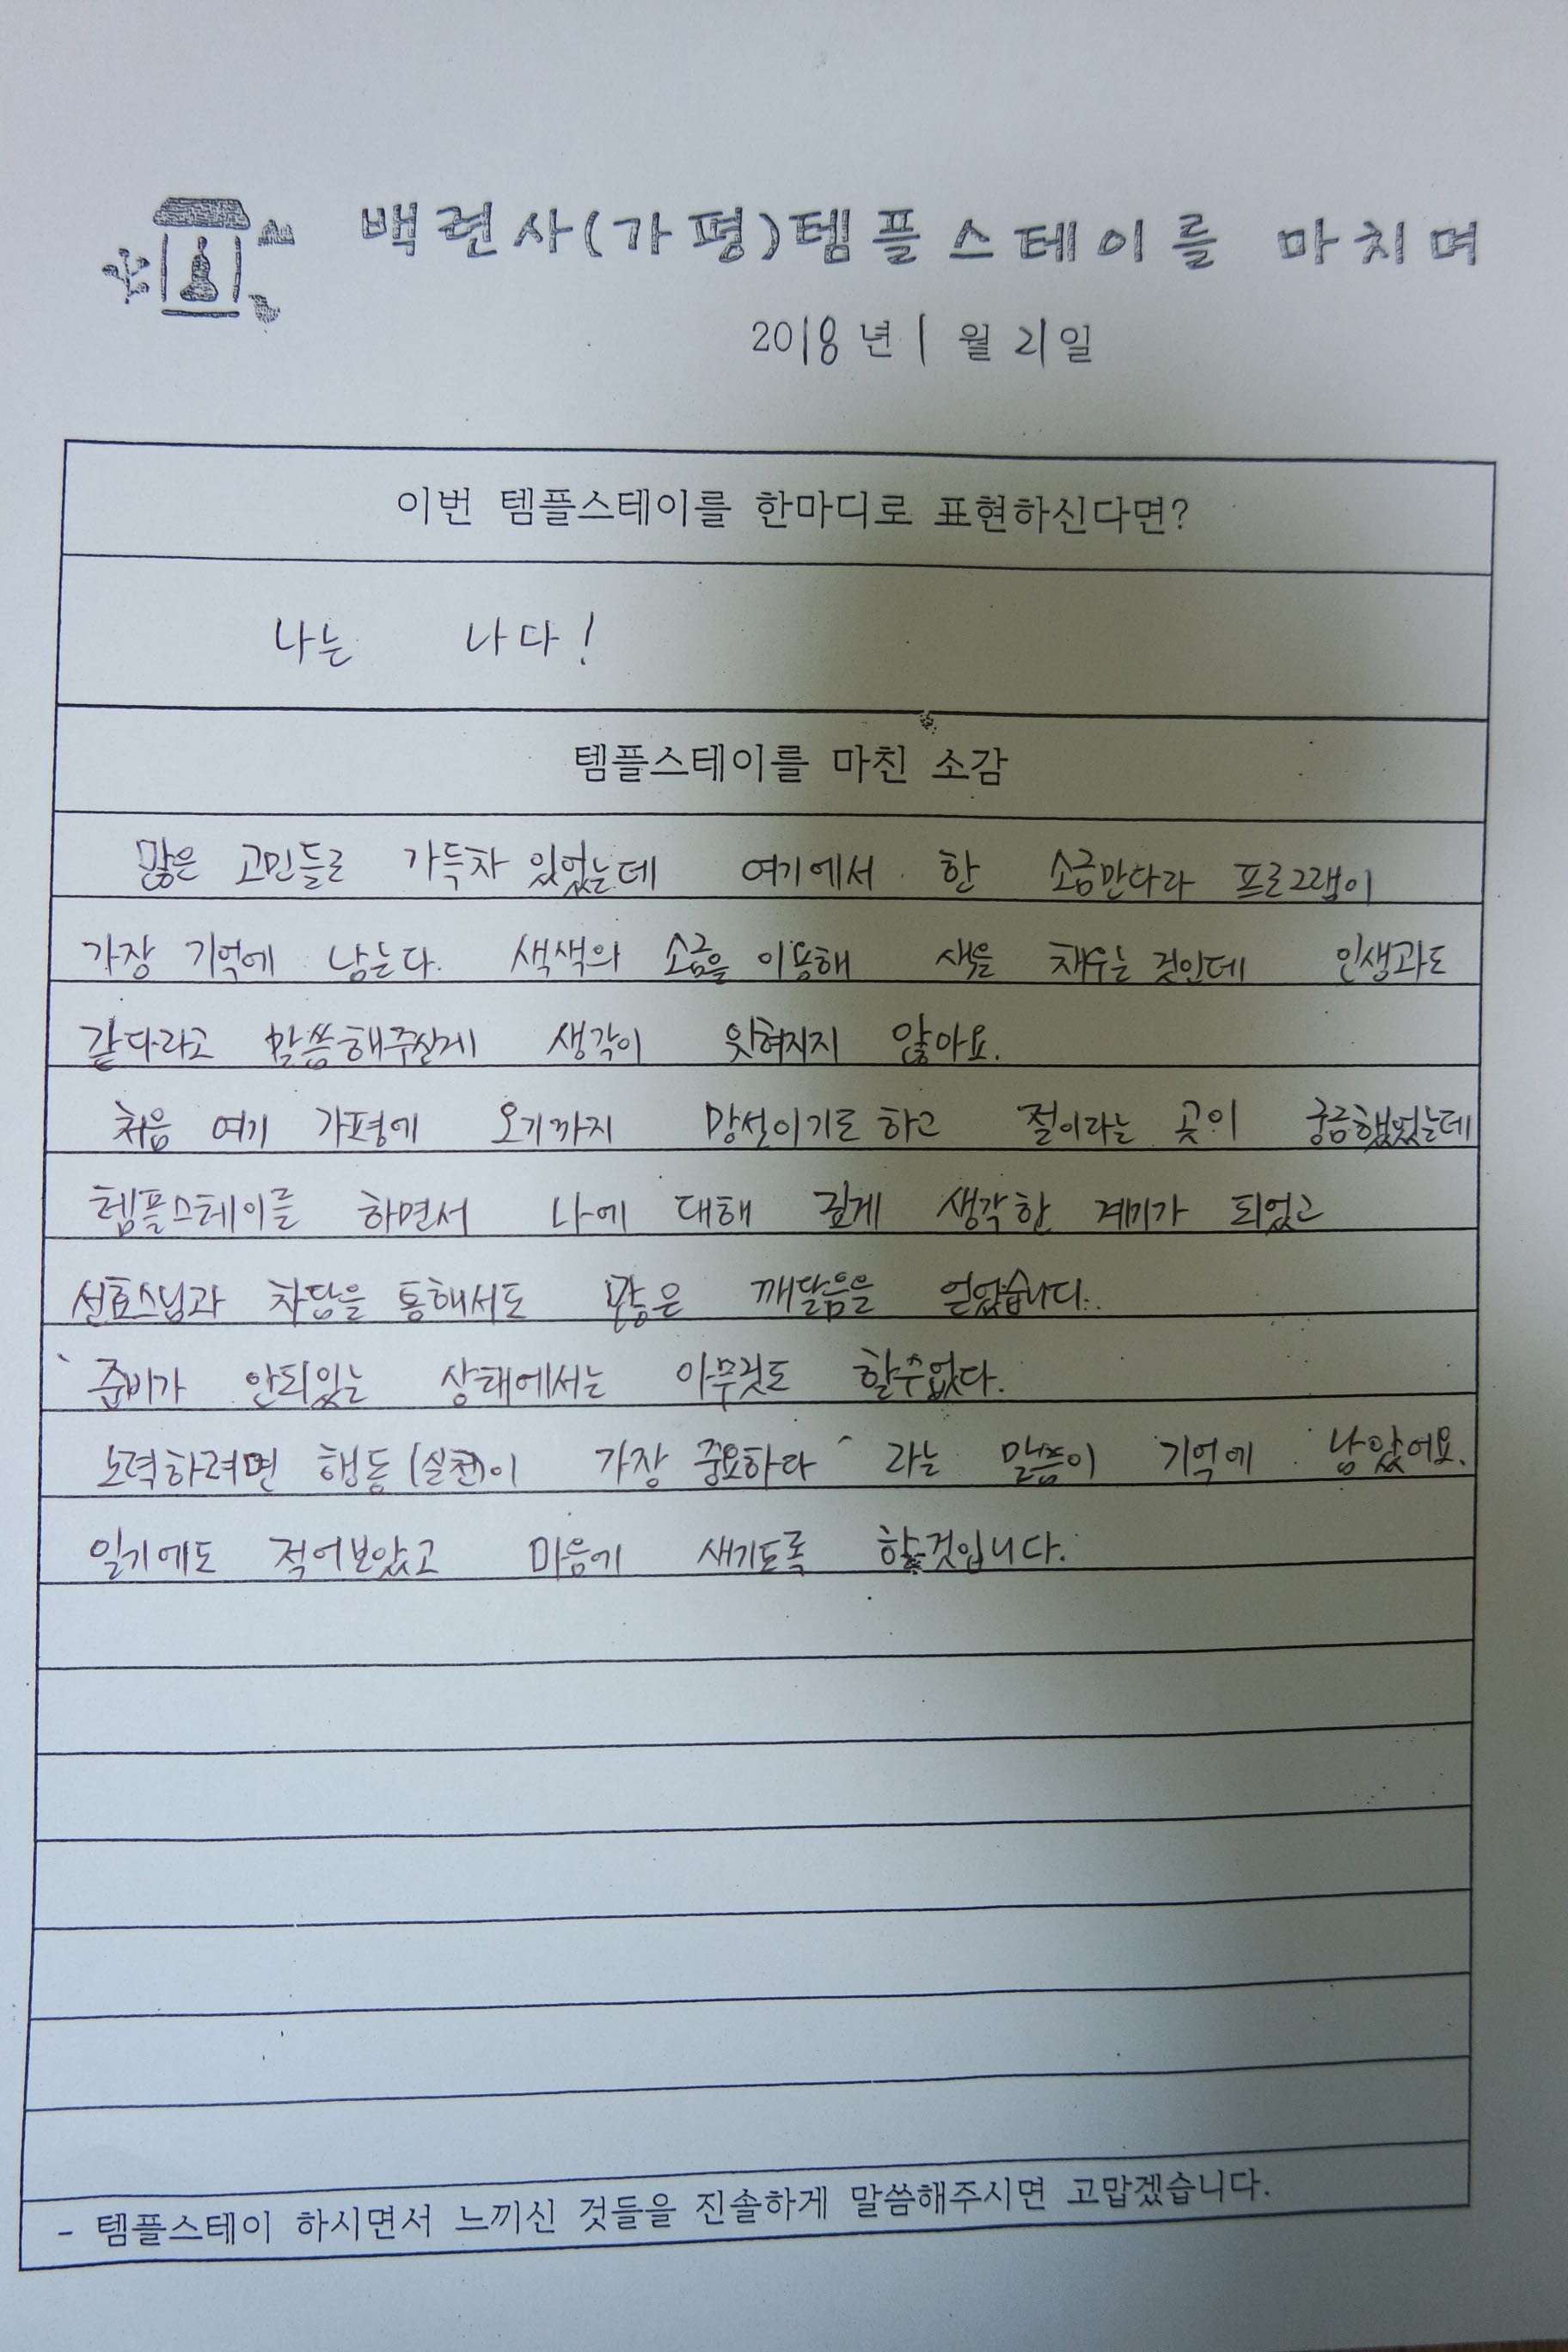 백련사(가평)템플스테이를 마치며
2018년 1월 21일
이번 템플스테이를 한마디로 표현하신다면?
나는 나다!
템플스테이를 마친 소감
많은 고민들로 가득차 있었는데 여기에서 한 소금만다라 프로그램이
가장 기억에 남는다. 색색의 소금을 이용해 색을 채우는 것인데 인생과도
같다라고 말씀해주신게 생각이 잊혀지지 않아요.
처음 여기 가평에 오기까지 망설이기도 하고 절이라는 곳이 궁금했었는데
템플스테이를 하면서 나에 대해 깊게 생각한 계기가 되었고
선효스님과 차담을 통해서도 많은 깨달음을 얻었습니다.
` 준비가 안되있는 상태에서는 아무것도 할수없다.
노력하려면 행동(실천)이 가장 중요하다 ` 라는 말씀이 기억에 남았어요.
일기에도 적어보았고 마음에 새기도록 할것입니다.
- 템플스테이 하시면서 느끼신 것들을 진솔하게 말씀해주시면 고맙겠습니다.